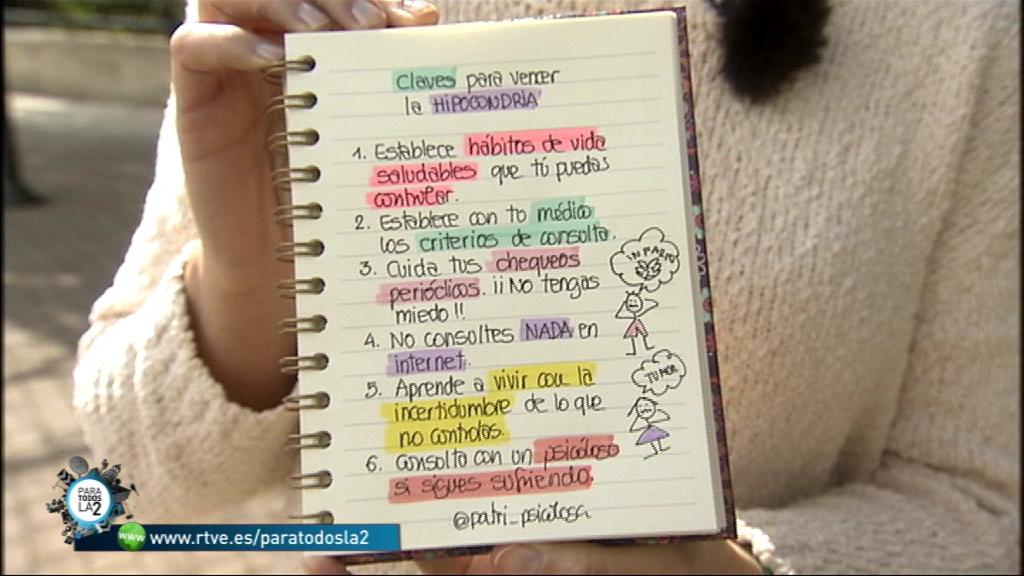 Claves para vencer
la HIPOCONDRÍA
1. Establece hábitos de vida
saludables que tú puedas
controlar.
2. Establece con tu médico
los criterios de consulta.
3. Cuida tus chequeos
periódicos. ¡¡No tengas
miedo!!
4. No consultes NADA en
internet.
5. Aprende a vivir con la
incertidumbre de lo que
no controlas.
6. Consulta con un psicólogo
si sigues sufriendo.
@patri_psicologa
TUMOR
PARA
TODOS
LA2
www www.rtve.es/paratodosla2